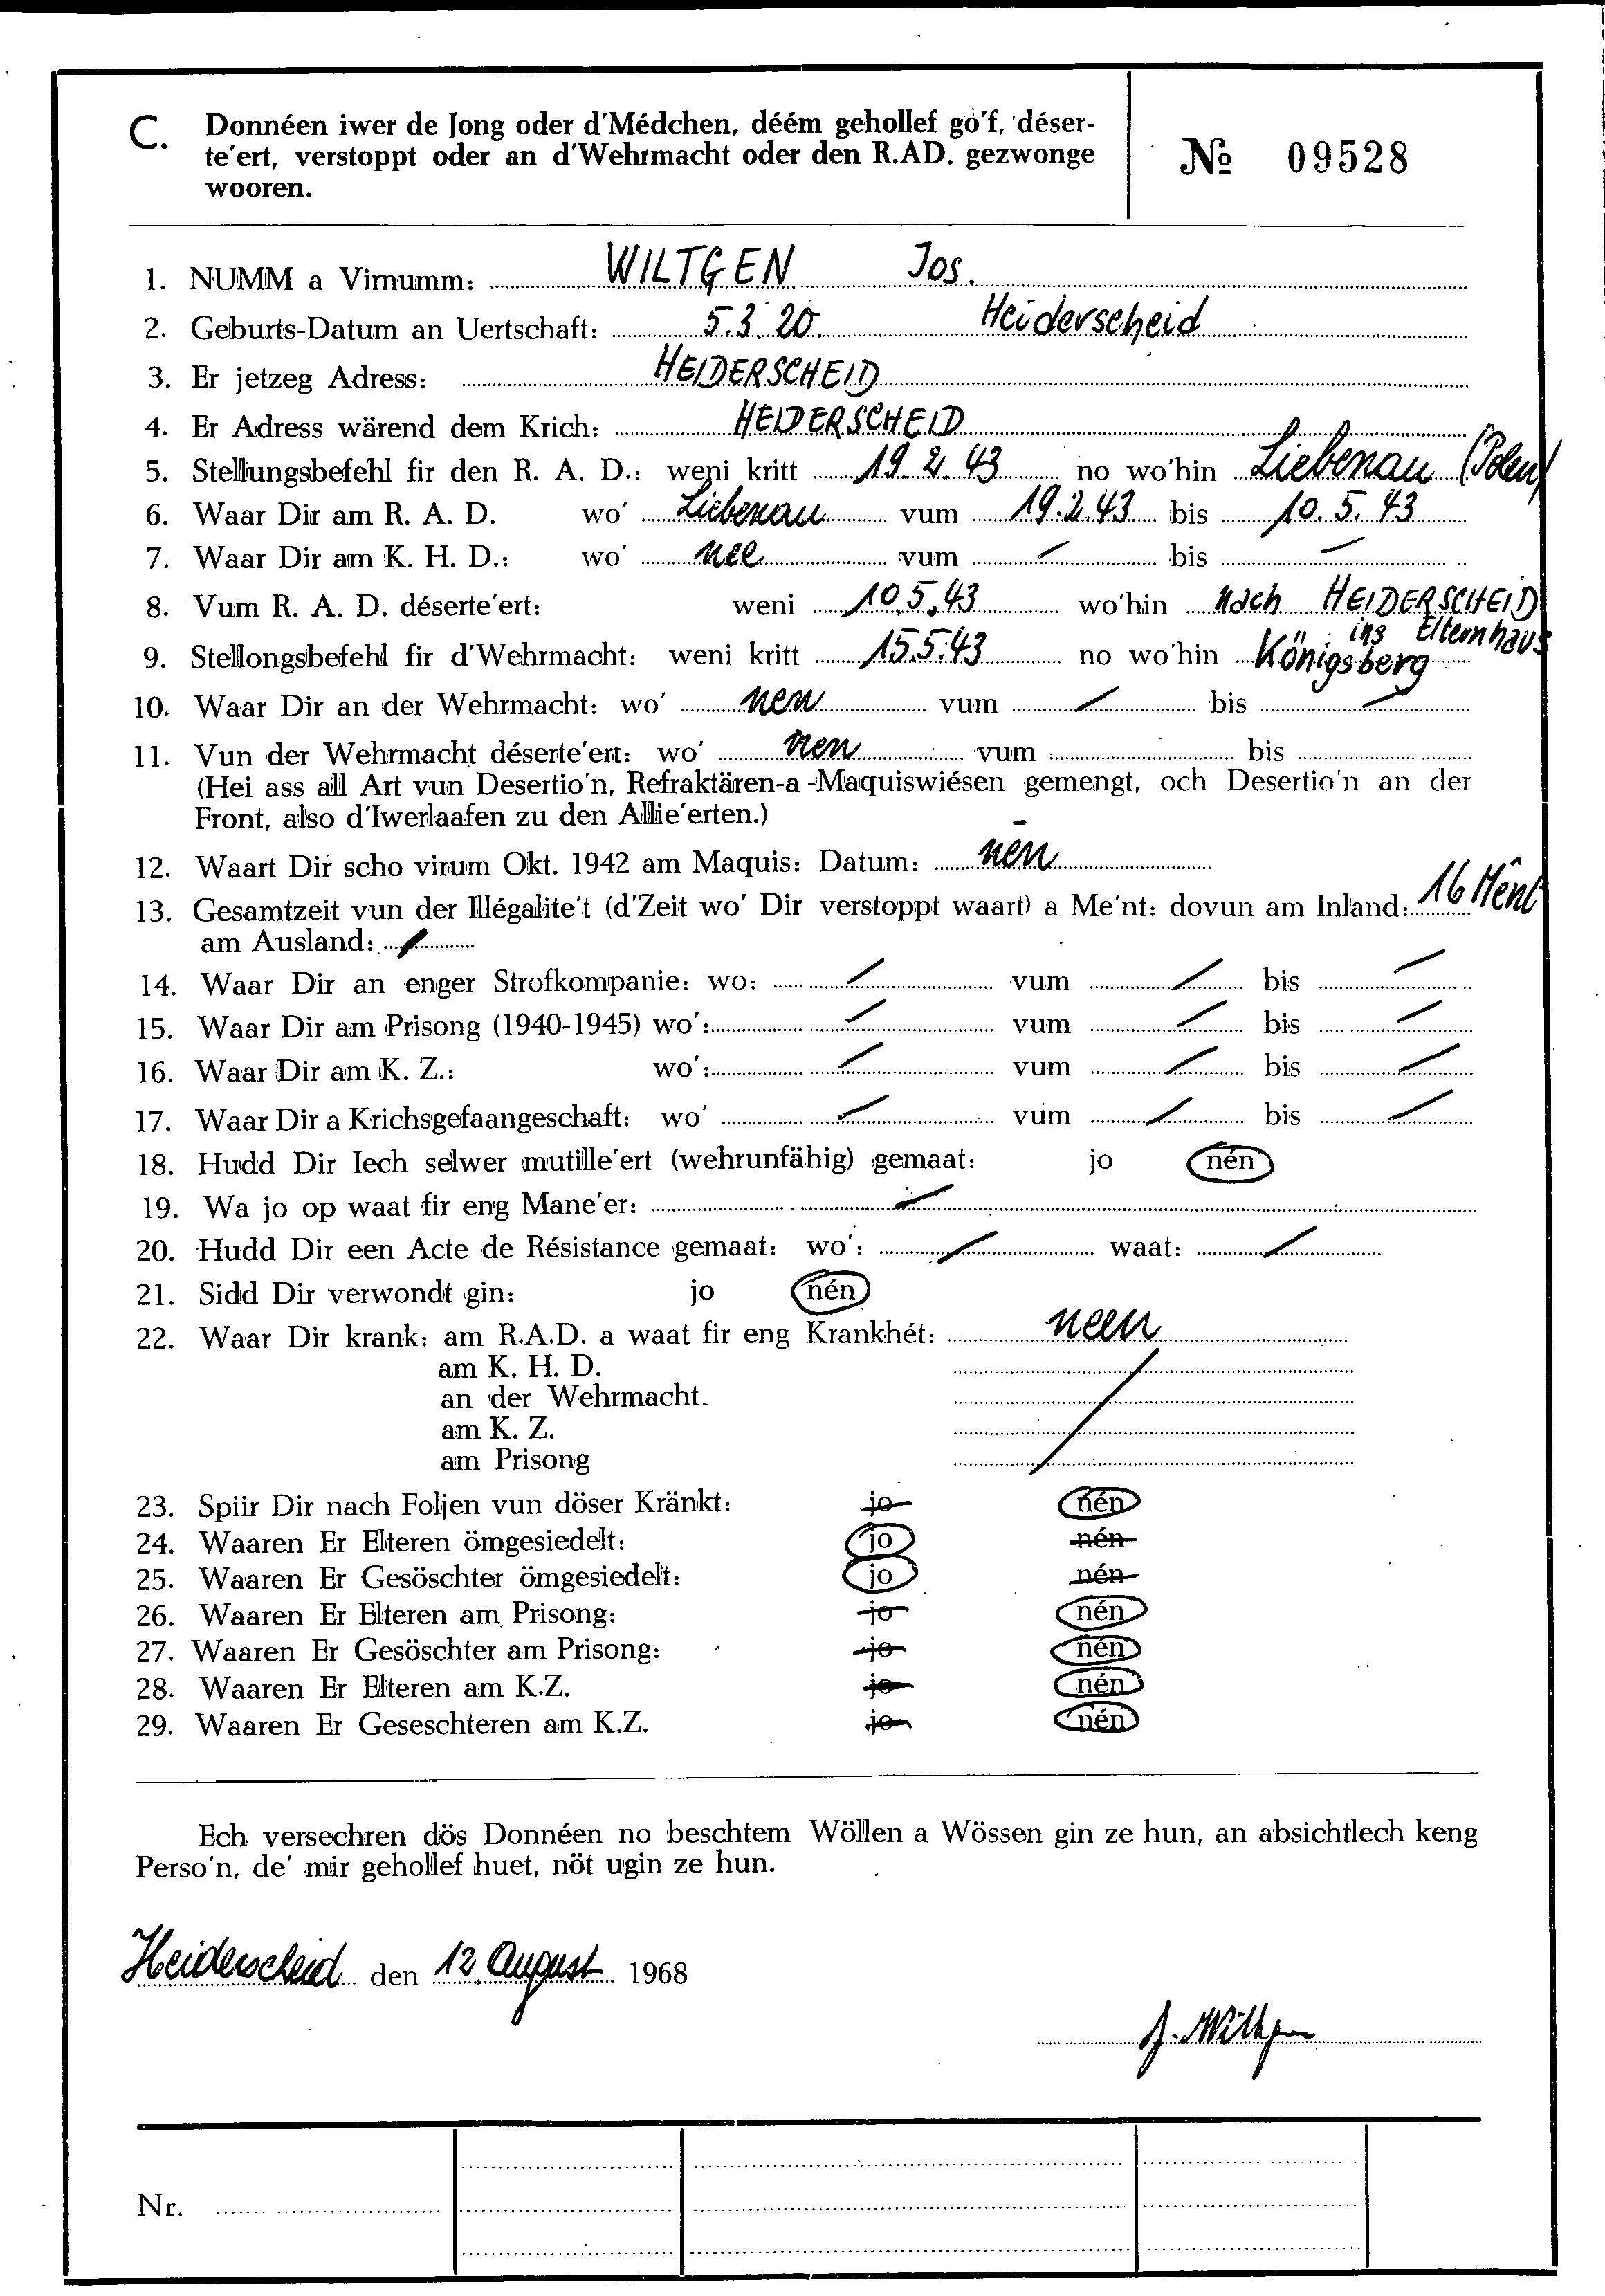 C. Donnéen iwer de Jong oder d'Médchen, déém gehollef go'f, déser-
te'ert, verstoppt oder an d'Wehrmacht oder den R.AD. gezwonge
wooren.
№ 09528
1. NUMM a Virnumm: WILTGEN Jos.
2. Geburts-Datum an Uertschaft: 5.3.20. Heiderscheid
3. Er jetzeg Adress: HEIDERSCHEID
4. Er Adress wärend dem Krich: HEIDERSCHEID
5. Stellungsbefehl fir den R. A. D.: weni kritt 19.2.43 no wo'hin Liebenau (Polen)
6. Waar Dir am R. A. D. wo' Liebenau vum 19.2.43 bis 10.5.43
7. Waar Dir am K. H. D.: wo' nee vum — bis —
8. Vum R. A. D. déserte'ert: weni 10.5.43 wo'hin nach HEIDERSCHEID
ins Elternhaus
9. Stellongsbefehl fir d'Wehrmacht: weni kritt 15.5.43 no wo'hin Königsberg
10. Waar Dir an der Wehrmacht: wo' nen vum / bis /
11. Vun der Wehrmacht déserte'ert: wo' nen vum bis
(Hei ass all Art vun Desertio'n, Refraktären-a-Maquiswiésen gemengt, och Desertio'n an der
Front, also d'Iwerlaafen zu den Allie'erten.)
12. Waart Dir scho virum Okt. 1942 am Maquis: Datum: nen
13. Gesamtzeit vun der Illégalite't (d'Zeit wo' Dir verstoppt waart) a Me'nt: dovun am Inland: 16 Mênt
am Ausland: /
14. Waar Dir an enger Strofkompanie: wo: / vum / bis /
15. Waar Dir am Prisong (1940-1945) wo': / vum / bis /
16. Waar Dir am K. Z.: wo': / vum / bis /
17. Waar Dir a Krichsgefaangeschaft: wo' / vum / bis /
18. Hudd Dir Iech selwer mutille'ert (wehrunfähig) gemaat: jo nén
19. Wa jo op waat fir eng Mane'er: /
20. Hudd Dir een Acte de Résistance gemaat: wo': / waat: /
21. Sidd Dir verwondt gin: jo nén
22. Waar Dir krank: am R.A.D. a waat fir eng Krankhét: neen
am K. H. D.
an der Wehrmacht.
am K. Z.
am Prisong
23. Spiir Dir nach Foljen vun döser Kränkt: jo nén
24. Waaren Er Elteren ömgesiedelt: jo nén
25. Waaren Er Gesöschter ömgesiedelt: jo nén
26. Waaren Er Elteren am Prisong: jo nén
27. Waaren Er Gesöschter am Prisong: jo nén
28. Waaren Er Elteren am K.Z. jo nén
29. Waaren Er Geseschteren am K.Z. jo nén
Ech versechren dös Donnéen no beschtem Wöllen a Wössen gin ze hun, an absichtlech keng
Perso'n, de' mir gehollef huet, nöt ugin ze hun.
Heiderscheid den 12. August 1968
J. Wiltgen
Nr.